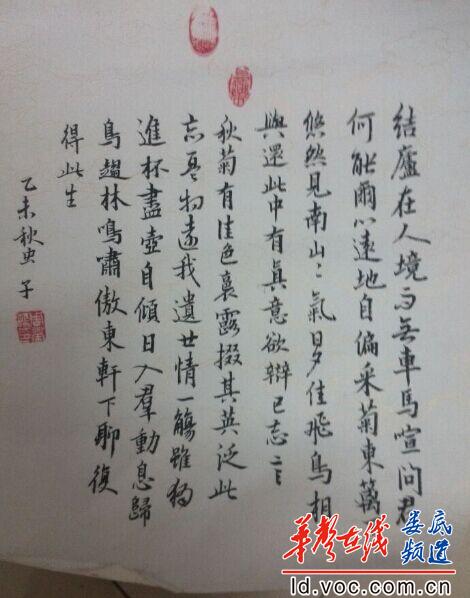 結廬在人境而無車馬喧問君
何能爾心遠地自偏采菊東籬
悠然見南山〻氣日夕佳飛鳥相
與還此中有眞意欲辯已忘言
秋菊有佳色裛露掇其英泛此
忘憂物遠我遺世情一觴雖獨
進杯盡壺自傾日入羣動息歸
鳥趨林鳴嘯傲東軒下聊復
得此生
乙未秋虫子
华声在线 娄底频道
ld.voc.com.cn